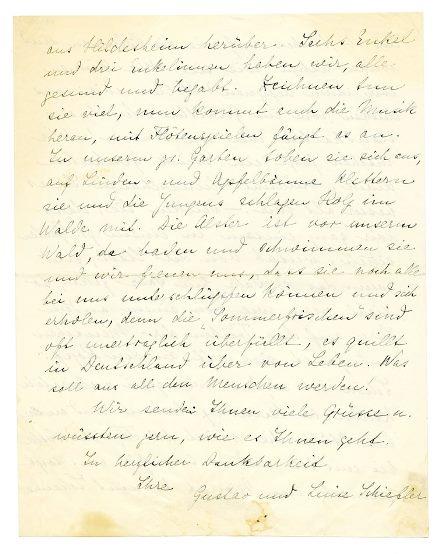 aus Hildesheim herüber. Sechs Enkel
und drei Enkelinnen haben wir, alle
gesund und begabt. Zeichnen tun
sie viel, nun kommt auch die Musik
heran, mit Flötenspielen fängt es an.
In unserm gr. Garten toben sie sich aus,
auf Linden- und Apfelbäume klettern
sie und die Jungens schlagen Holz im
Walde mit. Die Alster ist vor unserm
Wald, da baden und schwimmen sie
und wir freuen uns, dass sie noch alle
bei uns unterschlüpfen können und sich
erholen, denn die "Sommerfrischen" sind
oft unerträglich überfüllt, es quillt
in Deutschland über von Leben. Was
soll aus all den Menschen werden!
Wir senden Ihnen viele Grüsse u.
wüssten gern, wie es Ihnen geht.
In herzlicher Dankbarkeit
Ihre
Gustav und Luise Schiefler